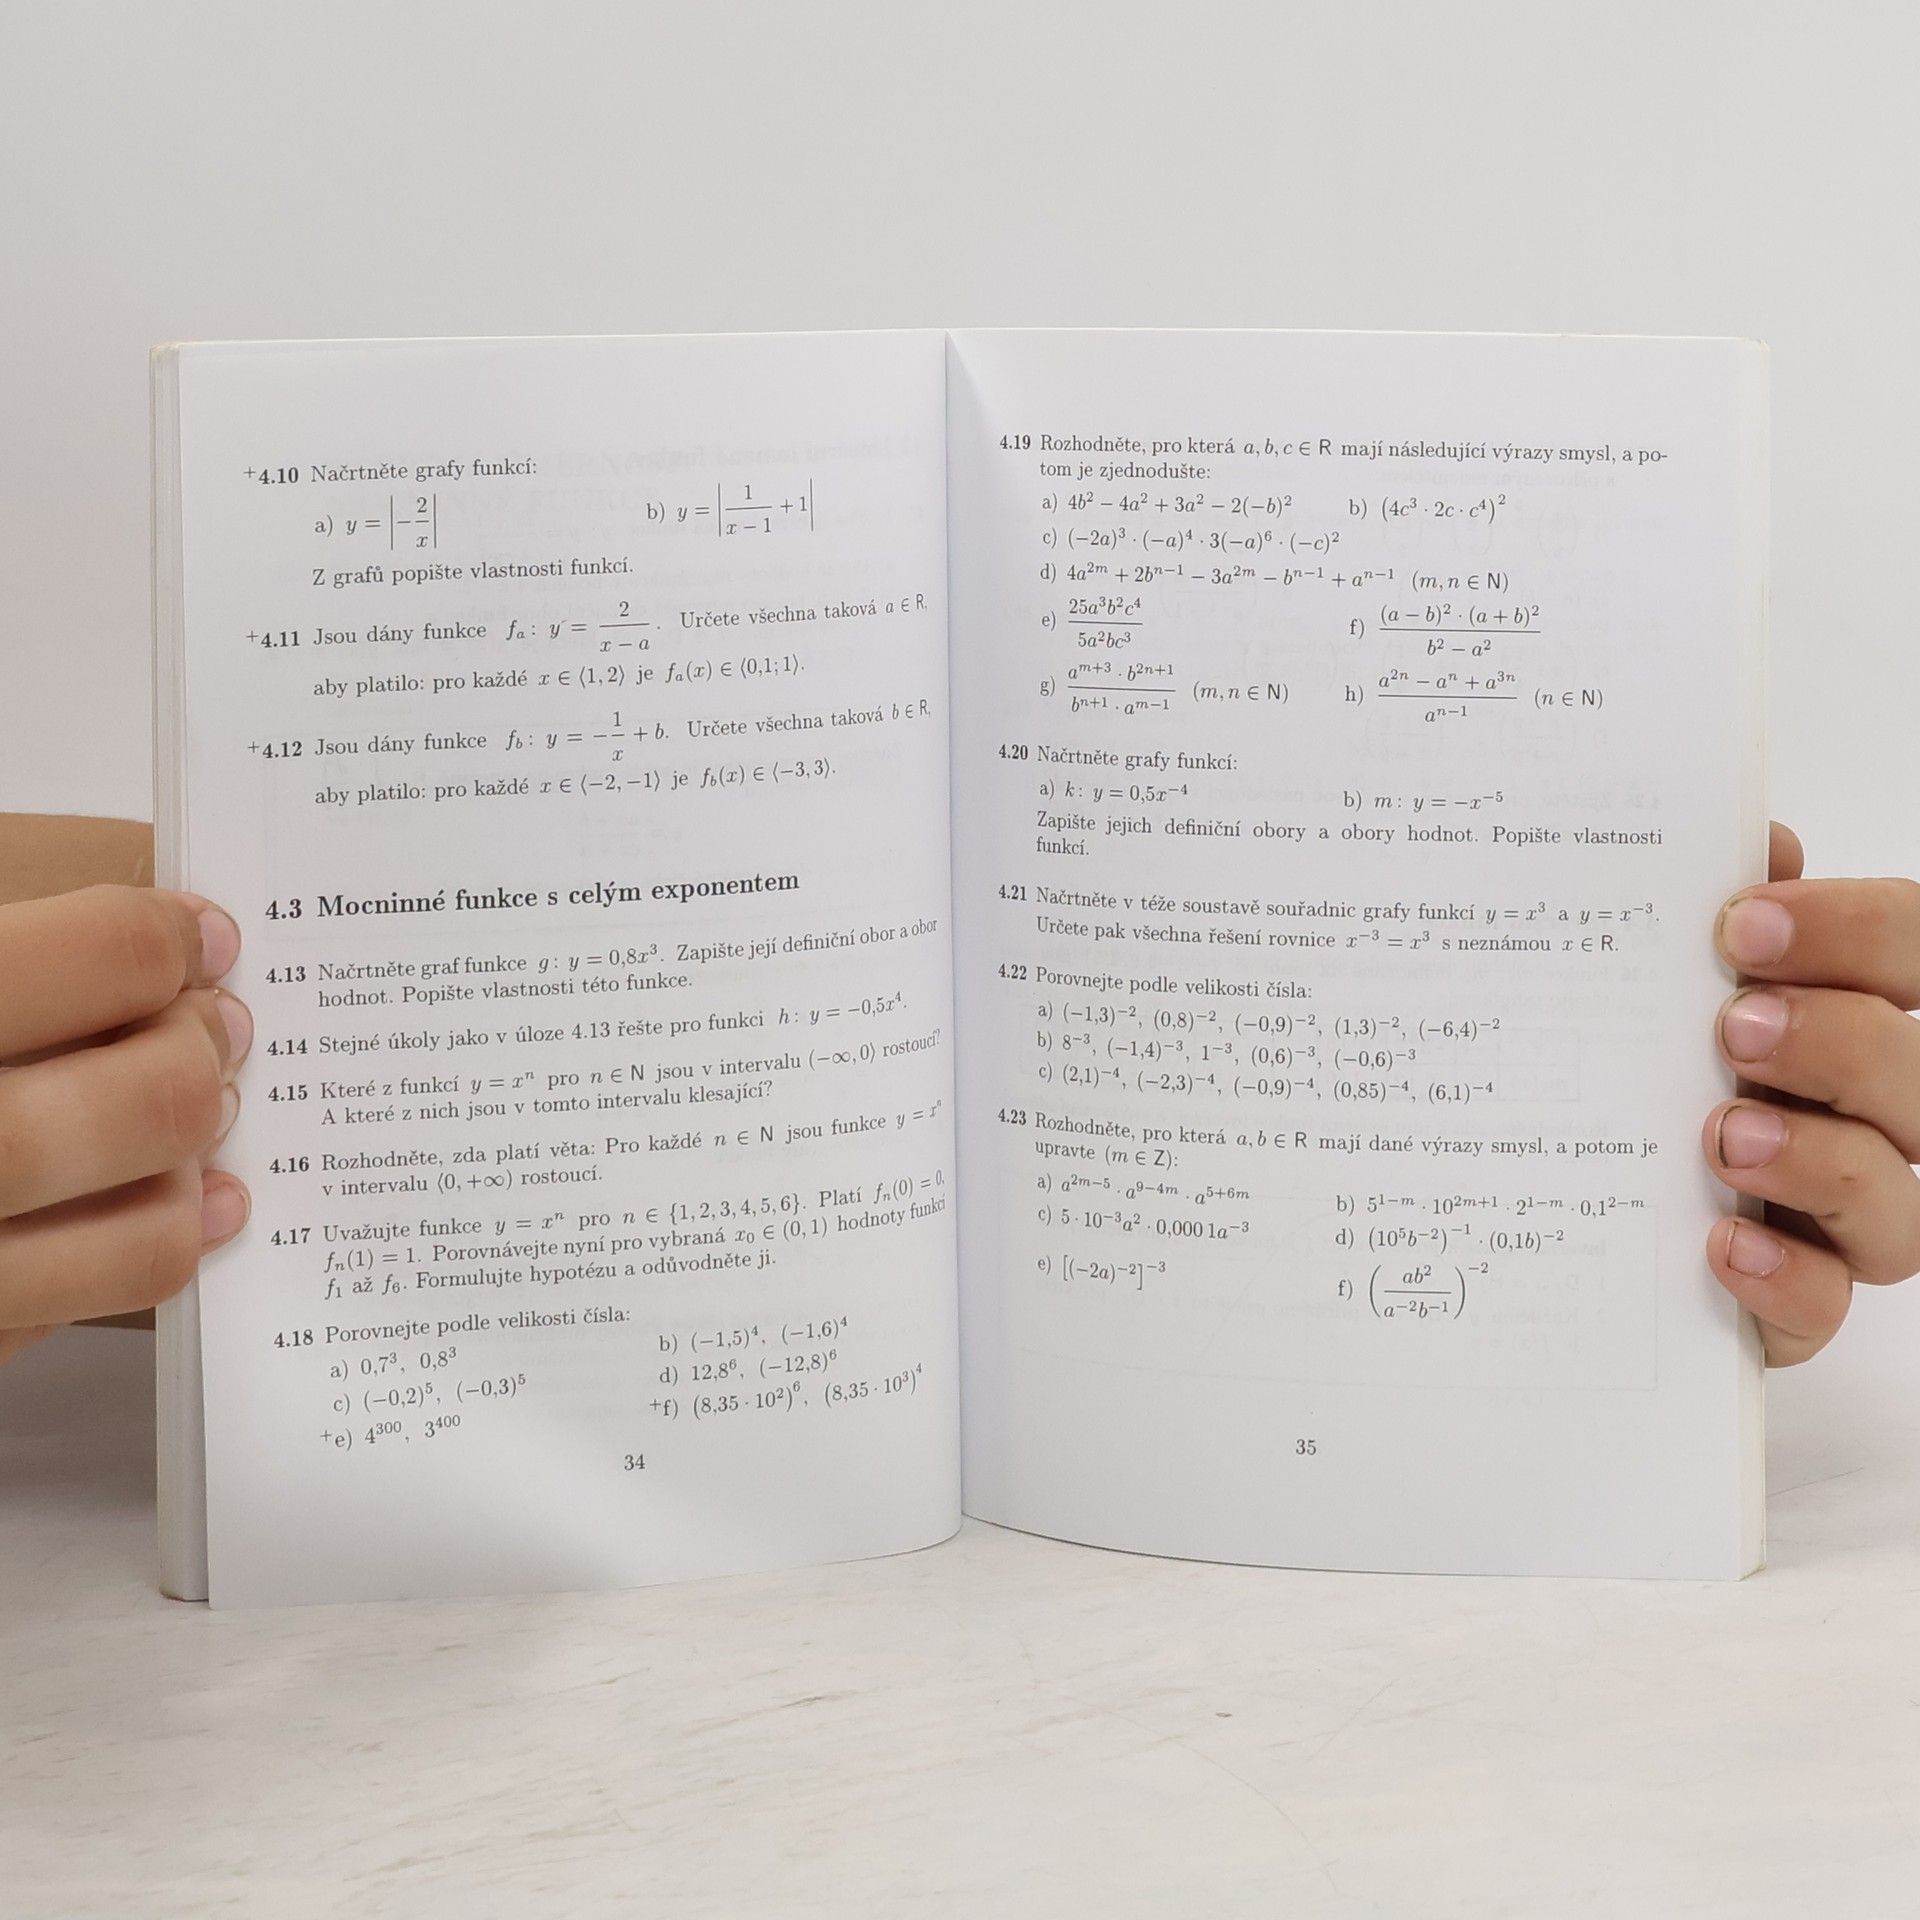 +4.10 Načrtněte grafy funkcí:
a) y = |−2/x| b) y = |1/(x − 1) + 1|
Z grafů popište vlastnosti funkcí.
+4.11 Jsou dány funkce fₐ: y = 2/(x − a). Určete všechna taková a ∈ R,
aby platilo: pro každé x ∈ ⟨1, 2⟩ je fₐ(x) ∈ ⟨0,1; 1⟩.
+4.12 Jsou dány funkce f_b: y = −1/x + b. Určete všechna taková b ∈ R,
aby platilo: pro každé x ∈ ⟨−2, −1⟩ je f_b(x) ∈ ⟨−3, 3⟩.
4.3 Mocninné funkce s celým exponentem
4.13 Načrtněte graf funkce g: y = 0,8x³. Zapište její definiční obor a obor
hodnot. Popište vlastnosti této funkce.
4.14 Stejné úkoly jako v úloze 4.13 řešte pro funkci h: y = −0,5x⁴.
4.15 Které z funkcí y = xⁿ pro n ∈ N jsou v intervalu (−∞, 0⟩ rostoucí?
A které z nich jsou v tomto intervalu klesající?
4.16 Rozhodněte, zda platí věta: Pro každé n ∈ N jsou funkce y = xⁿ
v intervalu ⟨0, +∞) rostoucí.
4.17 Uvažujte funkce y = xⁿ pro n ∈ {1, 2, 3, 4, 5, 6}. Platí fₙ(0) = 0,
fₙ(1) = 1. Porovnávejte nyní pro vybraná x₀ ∈ (0, 1) hodnoty funkcí
f₁ až f₆. Formulujte hypotézu a odůvodněte ji.
4.18 Porovnejte podle velikosti čísla:
a) 0,7³, 0,8³ b) (−1,5)⁴, (−1,6)⁴
c) (−0,2)⁵, (−0,3)⁵ d) 12,8⁶, (−12,8)⁶
+e) 4³⁰⁰, 3⁴⁰⁰ +f) (8,35 · 10²)⁶, (8,35 · 10³)⁴
34
4.19 Rozhodněte, pro která a, b, c ∈ R mají následující výrazy smysl, a po-
tom je zjednodušte:
a) 4b² − 4a² + 3a² − 2(−b)² b) (4c³ · 2c · c⁴)²
c) (−2a)³ · (−a)⁴ · 3(−a)⁶ · (−c)²
d) 4a²ᵐ + 2bⁿ⁻¹ − 3a²ᵐ − bⁿ⁻¹ + aⁿ⁻¹ (m, n ∈ N)
e) 25a³b²c⁴/5a²bc³ f) (a − b)² · (a + b)²/(b² − a²)
g) aᵐ⁺³ · b²ⁿ⁺¹/(bⁿ⁺¹ · aᵐ⁻¹) (m, n ∈ N) h) (a²ⁿ − aⁿ + a³ⁿ)/aⁿ⁻¹ (n ∈ N)
4.20 Načrtněte grafy funkcí:
a) k: y = 0,5x⁻⁴ b) m: y = −x⁻⁵
Zapište jejich definiční obory a obory hodnot. Popište vlastnosti
funkcí.
4.21 Načrtněte v téže soustavě souřadnic grafy funkcí y = x³ a y = x⁻³.
Určete pak všechna řešení rovnice x⁻³ = x³ s neznámou x ∈ R.
4.22 Porovnejte podle velikosti čísla:
a) (−1,3)⁻², (0,8)⁻², (−0,9)⁻², (1,3)⁻², (−6,4)⁻²
b) 8⁻³, (−1,4)⁻³, 1⁻³, (0,6)⁻³, (−0,6)⁻³
c) (2,1)⁻⁴, (−2,3)⁻⁴, (−0,9)⁻⁴, (0,85)⁻⁴, (6,1)⁻⁴
4.23 Rozhodněte, pro která a, b ∈ R mají dané výrazy smysl, a potom je
upravte (m ∈ Z):
a) a²ᵐ⁻⁵ · a⁹⁻⁴ᵐ · a⁵⁺⁶ᵐ b) 5¹⁻ᵐ · 10²ᵐ⁺¹ · 2¹⁻ᵐ · 0,1²⁻ᵐ
c) 5 · 10⁻³a² · 0,000 1a⁻³ d) (10⁵b⁻²)⁻¹ · (0,1b)⁻²
e) [(−2a)⁻²]⁻³ f) (ab²/a⁻²b⁻¹)⁻²
35